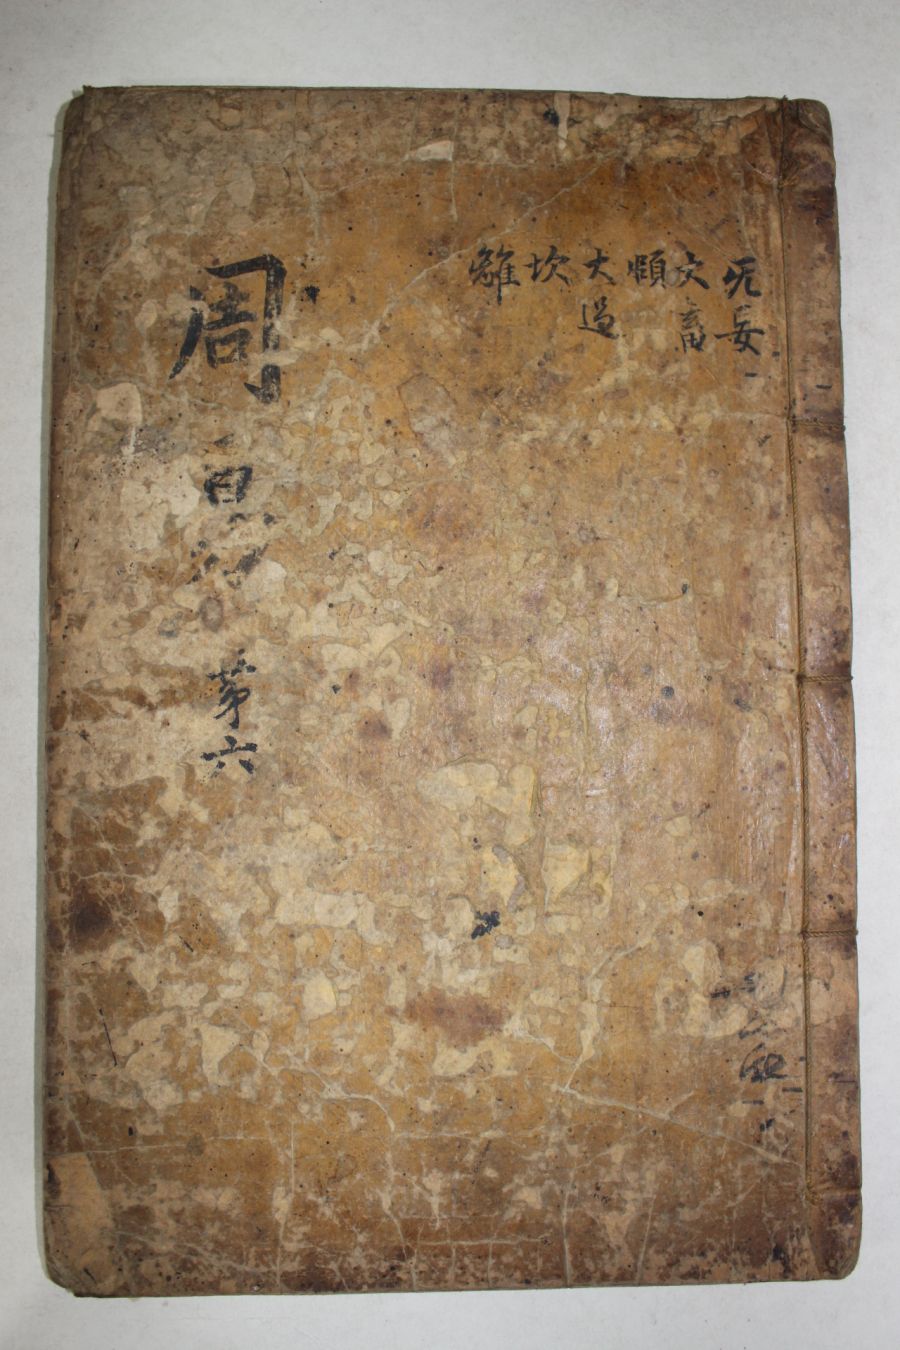 无妄
大畜
頤
大過
坎
離
周易 苐六